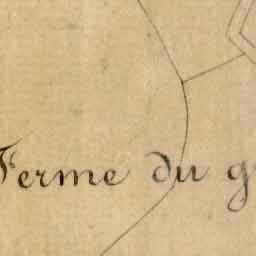 Ferme du g